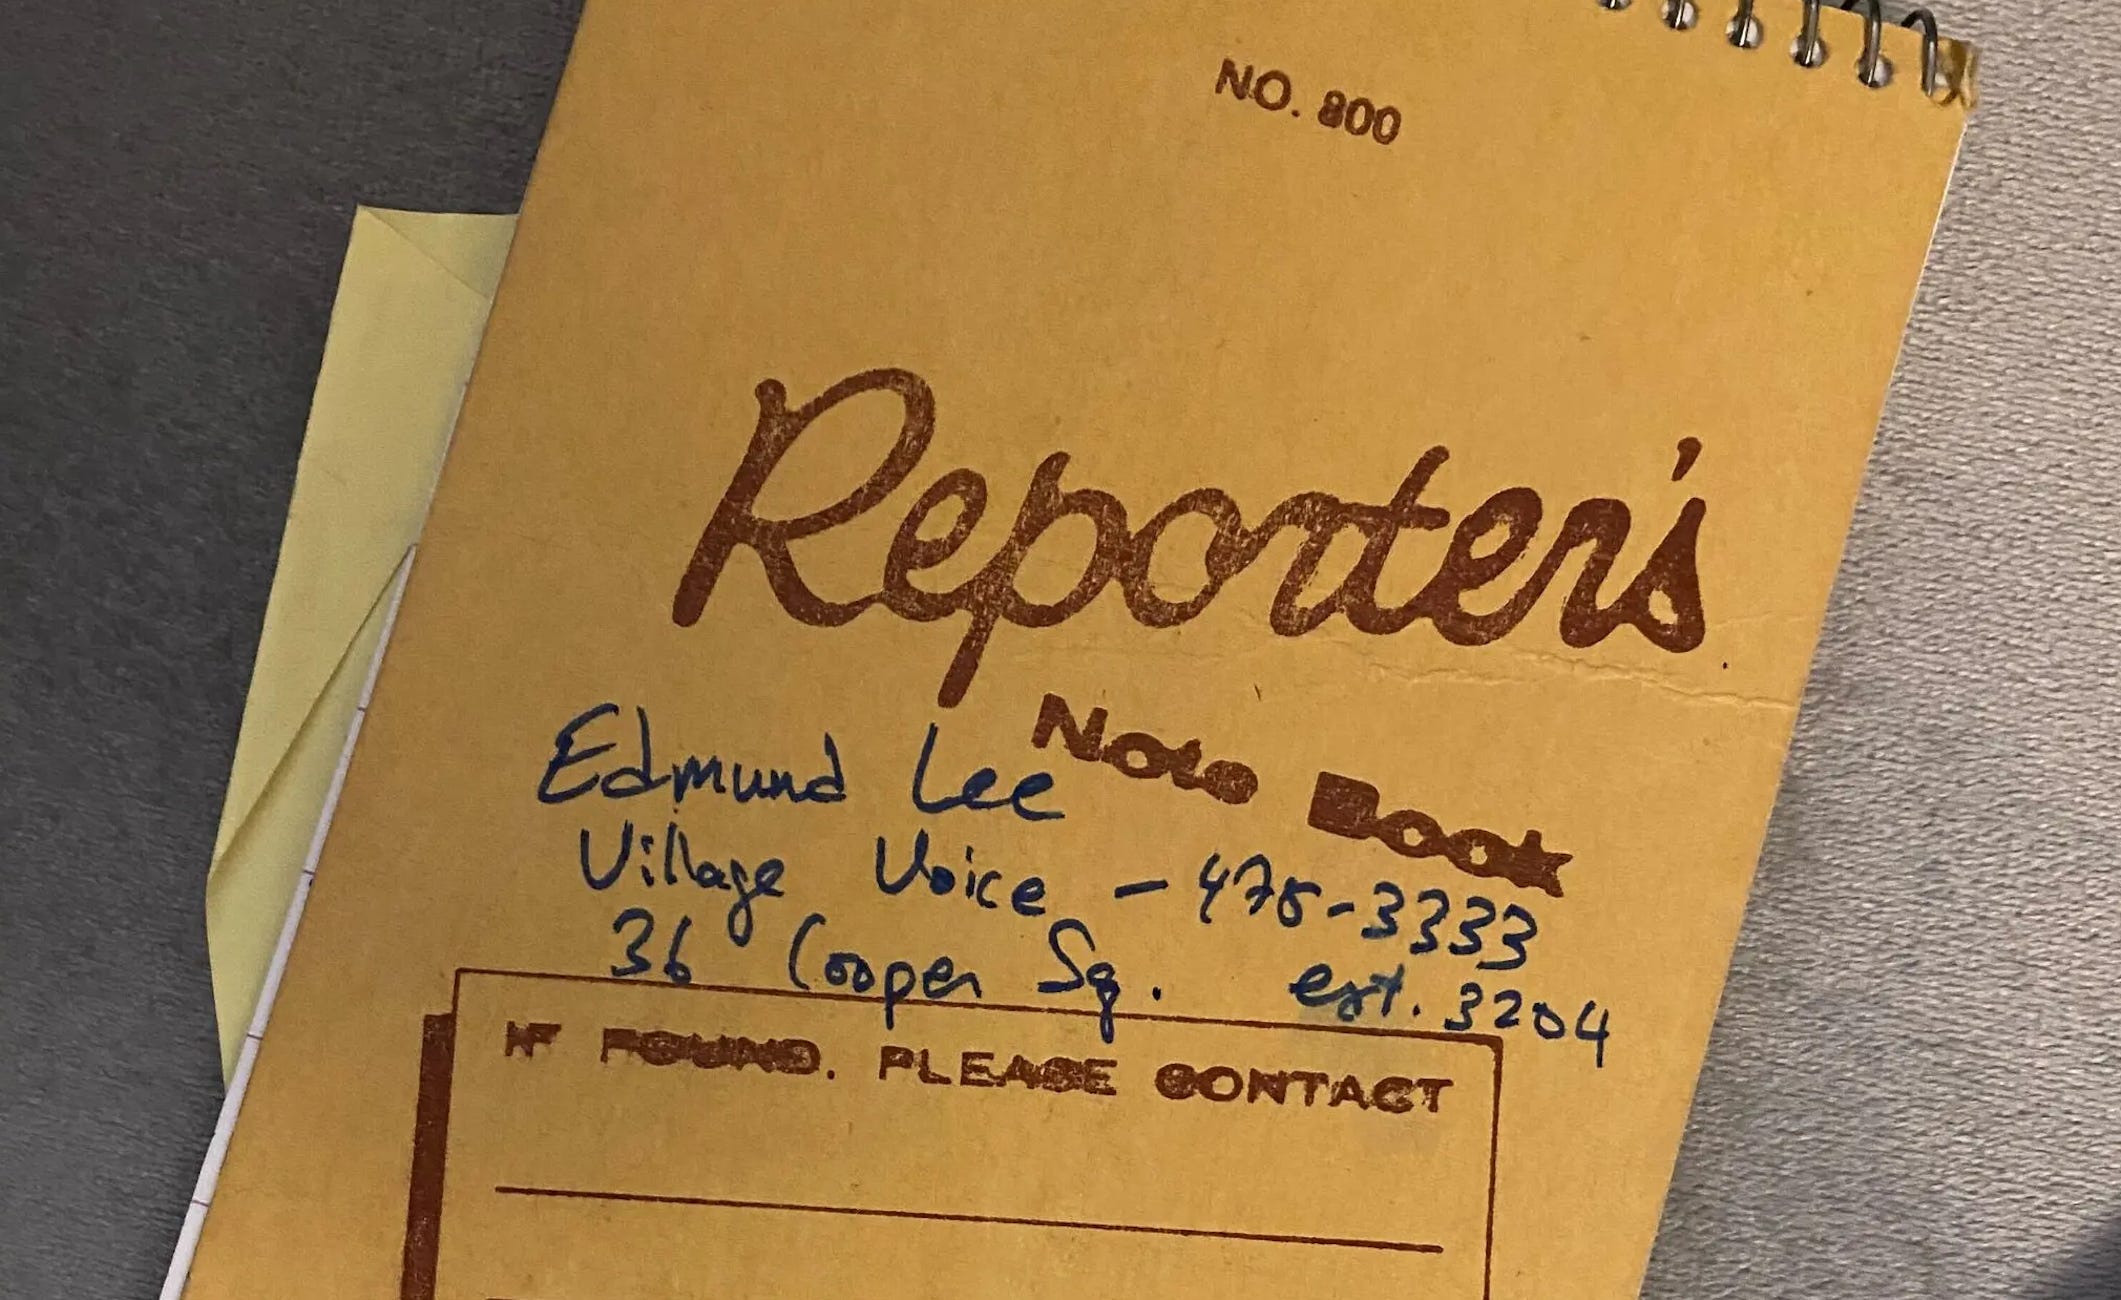 NO. 800
Reporter's
Note Book
Edmund Lee
Village Voice - 475-3333
36 Cooper Sq. ext. 3204
IF FOUND, PLEASE CONTACT